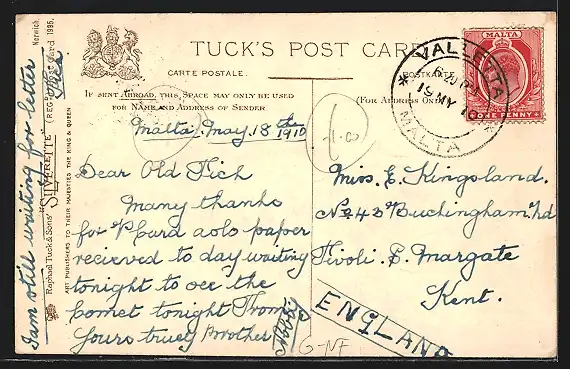 TUCK'S POST CARD
CARTE POSTALE.
POSTKA
IF SENT ABROAD, THIS SPACE MAY ONLY BE USED
FOR NAME AND ADDRESS OF SENDER
(FOR ADDRESS ONLY)
Malta. May 18th 1910
Dear Old Tich
Many thanks
for P Card also paper
recieved to day waiting
tonight to see the
Comet tonight From
Yours truely Brother
Nobby
Miss. E. Kingsland.
No 43 Buckingham Rd
Tivoli. E. Margate
Kent.
ENGLAND
I am still waiting for letter
Raphael Tuck & Sons' "SILVERETTE" (REGD) Postcard 1995. Norwich.
ART PUBLISHERS TO THEIR MAJESTIES THE KING & QUEEN
VALLETTA
19 MY 1
MALTA
MALTA
ONE PENNY
G-NF